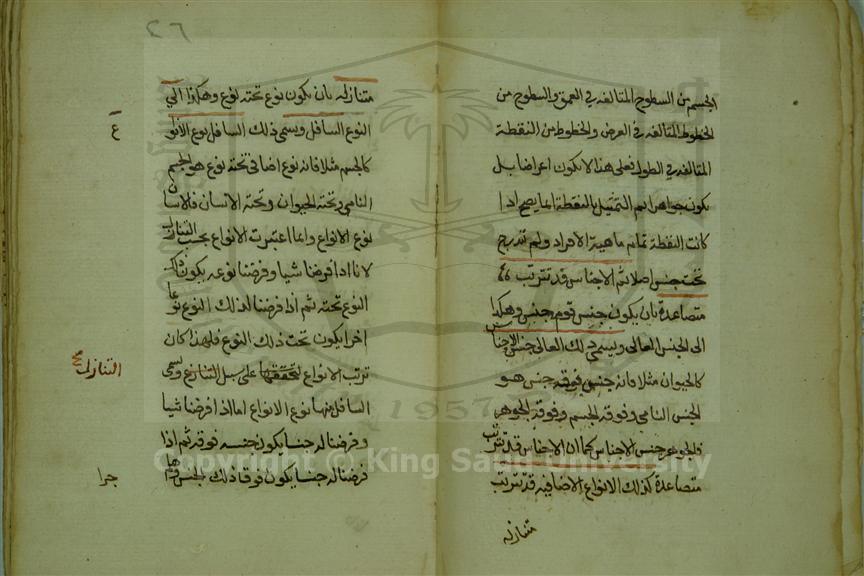 الجسم من السطوح المتالفه في العمق والسطوح من
الخطوط المتالفه في العرض والخطوط من النقطة
المتالفه في الطول فعلى هذا لا يكون اعراضا بل
يكون جواهرا ثم التمثيل بالنقطة انما يصح اذا
كانت النقطة تمام ماهية الافراد ولم تندرج
تحت جنس اصلا ثم الاجناس قد تترتب
متصاعدة بان يكون جنس فوقه جنس وهكذا
الى الجنس العالى ويسمى ذلك العالى جنس الاجناس
كالحيوان مثلا فانه جنس فوقه جنس هو
الجنس النامى وفوقه الجسم وفوقه الجوهر
فالجوهر جنس الاجناس كما ان الاجناس قد تترتب
متصاعدة كذلك الانواع الاضافيه قد تترتب
متنازله
٢٦
متنازله بان يكون نوع تحته نوع وهكذا الى
النوع السافل ويسمى ذلك السافل نوع الانواع
ع
كالجسم مثلا فانه نوع اضافى تحته نوع هو الجسم
النامى وتحته الحيوان وتحته الانسان فالانسان
نوع الانواع وانما اعتبرت الانواع بحسب التنازل
لانا اذا فرضنا شيا وفرضنا نوعه يكون ذلك
النوع تحته ثم اذا فرضنا لذلك النوع نوعا
اخر يكون تحت ذلك النوع فلهذا كان
ترتب الانواع لتحققها على سبيل التنازع ويسمى
التنازل صح
السافل منها نوع الانواع اما اذا فرضنا شيا
وفرضنا له جنسا يكون جنسه فوقه ثم اذا
فرضنا له جنسا يكون فوق ذلك الجنس وهلم
جرا
1957
Copyright © King Saud University